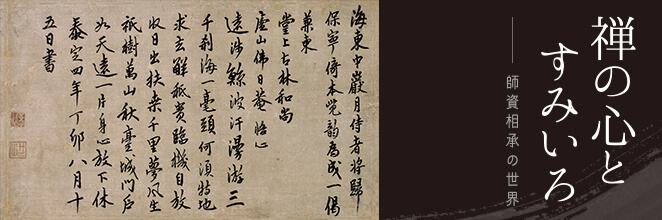 禅の心と
すみいろ
師資相承の世界
海東中巖月侍者将歸
保寧倚本覺韵為成一偈
東
堂上古林和尚
廬山佛日菴
遠渉鯨波汗漫游三
千刹海一毫頭何須特地
求玄解秖貴臨機自放
収日出扶桒千里夢風生
祇樹萬山秋臺城門戸
如天遠一片身心放下休
泰定四年丁卯八月十
五日書